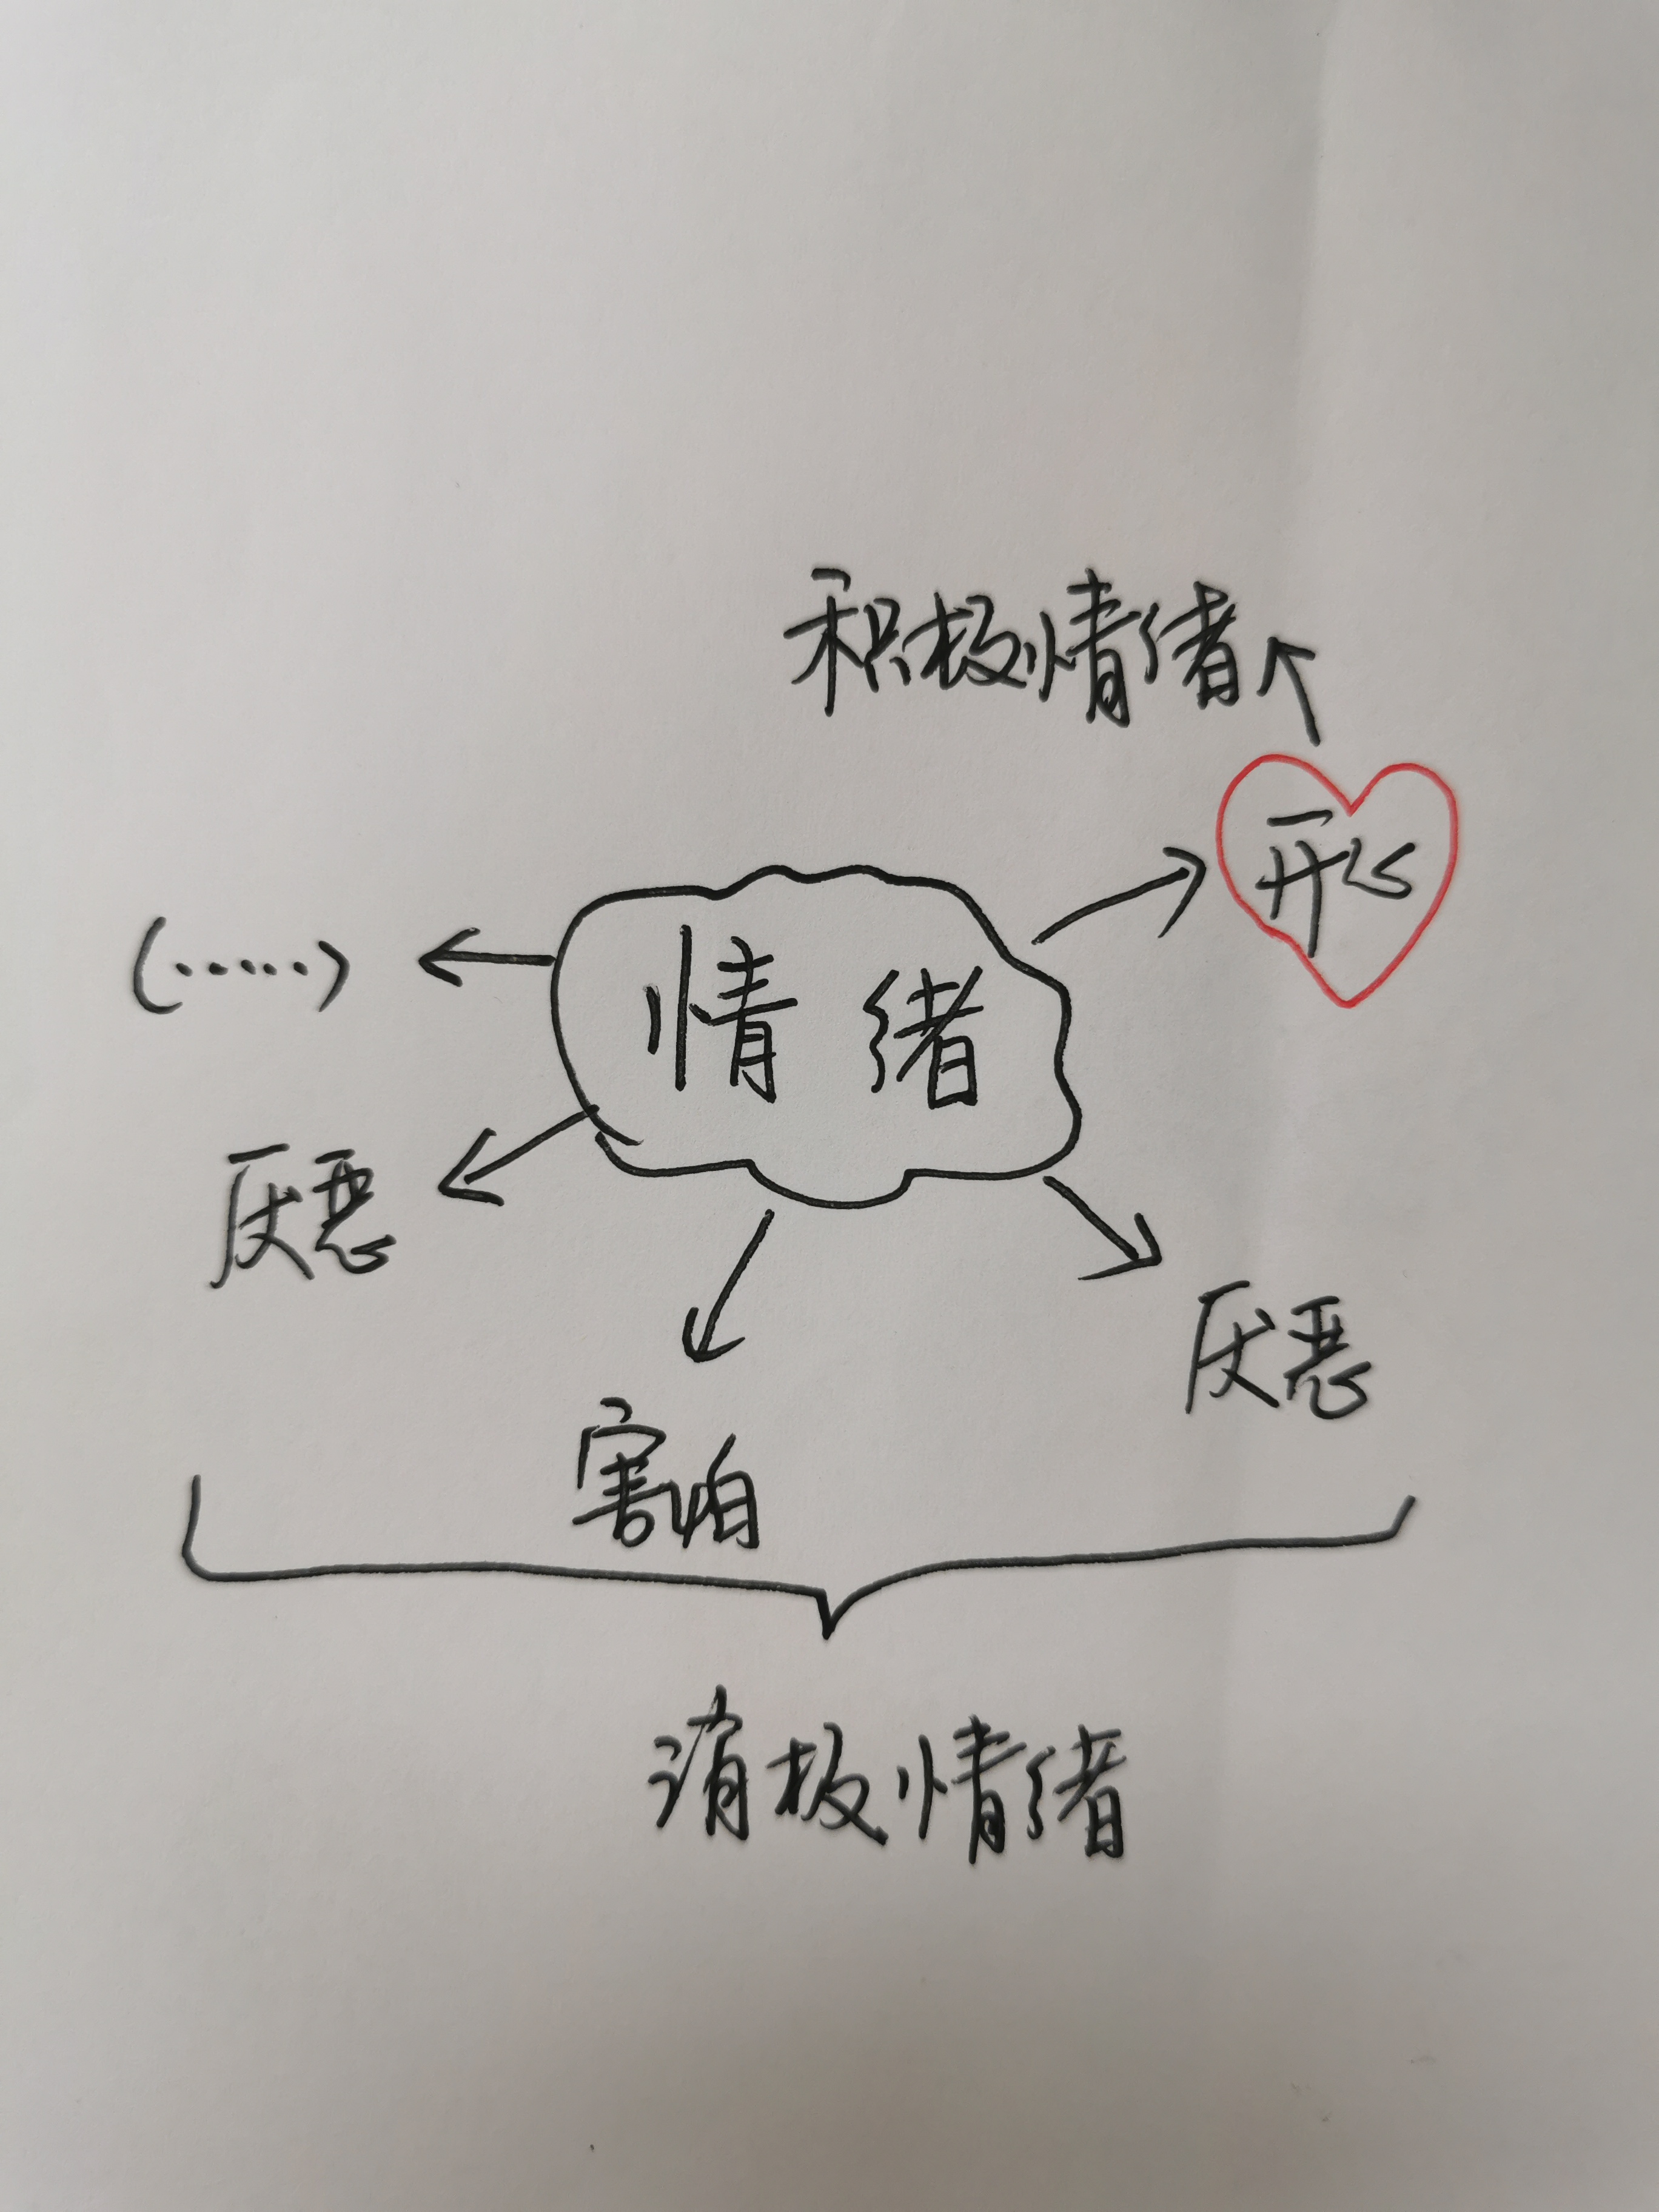 积极情绪
开心
情绪
(......)
厌恶
厌恶
害怕
消极情绪